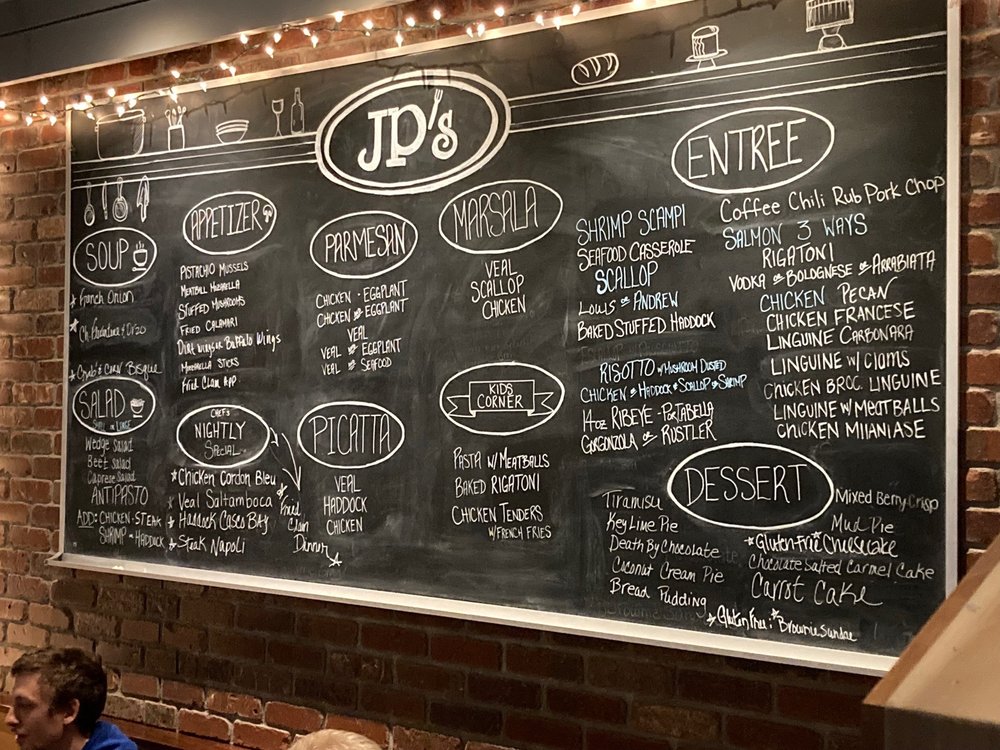 JP's
SOUP
French Onion
Crab & Corn Bisque
SALAD
SMALL OR LARGE
Wedge Salad
Beet Salad
Caprese Salad
ANTIPASTO
ADD: CHICKEN - STEAK
SHRIMP - HADDOCK
APPETIZER
PISTACHIO MUSSELS
MEATBALL MOZARELLA
STUFFED MUSHROOMS
FRIED CALAMARI
Dirt Wings or Buffalo Wings
MOZZARELLA STICKS
Fried Clam App.
CHEF'S
NIGHTLY
SPECIAL
Chicken Cordon Bleu
Veal Saltamboca
Haddock Casco BAY
Steak Napoli
Fried
Clam
Dinner
PARMESAN
CHICKEN - EGGPLANT
CHICKEN OR EGGPLANT
VEAL
VEAL OR EGGPLANT
VEAL OR SEAFOOD
PICATTA
VEAL
HADDOCK
CHICKEN
MARSALA
VEAL
SCALLOP
CHICKEN
KIDS
CORNER
PASTA W/ MEATBALLS
BAKED RIGATONI
CHICKEN TENDERS
W/ FRENCH FRIES
ENTREE
SHRIMP SCAMPI
SEAFOOD CASSEROLE
SCALLOP
LOUIS OR ANDREW
BAKED STUFFED HADDOCK
RISOTTO W/ MUSHROOM DUSTED
CHICKEN OR HADDOCK OR SCALLOP OR SHRIMP
14oz RIBEYE - PORTABELLA
GORGONZOLA OR RUSTLER
Coffee Chili Rub Pork Chop
SALMON 3 WAYS
RIGATONI
VODKA OR BOLOGNESE OR ARRABIATA
CHICKEN PECAN
CHICKEN FRANCESE
LINGUINE CARBONARA
LINGUINE W/ Clams
CHICKEN BROC. LINGUINE
LINGUINE W/ MEATBALLS
CHICKEN MILANIASE
DESSERT
Tiramisu
Key Lime Pie
Death By Chocolate
Coconut Cream Pie
Bread Pudding
Mixed Berry Crisp
Mud Pie
Gluten-Free Cheesecake
Chocolate Salted Carmel Cake
Carrot Cake
Gluten Free: Brownie Sundae